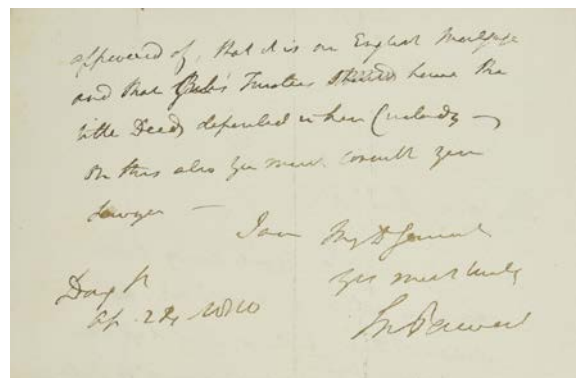 approved of, that it is on English Mortgage
and that Trustees should have the
title Deeds deposited in their Custody —
On this also you must consult your
Lawyer —
I am My D General
Yrs most truly
Ap 24